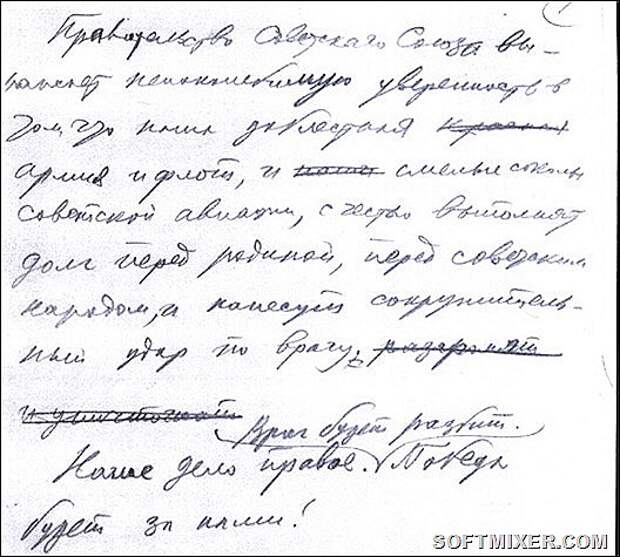 Правительство Советского Союза вы-
ражает непоколебимую уверенность в
том, что наши доблестная красная
армия и флот, и наши смелые соколы
советской авиации, с честью выполнят
долг перед родиной, перед советским
народом, и нанесут сокрушитель-
ный удар по врагу, разгромят
и уничтожат
Враг будет разбит.
Наше дело правое. Победа
будет за нами!
SOFTMIXER.COM